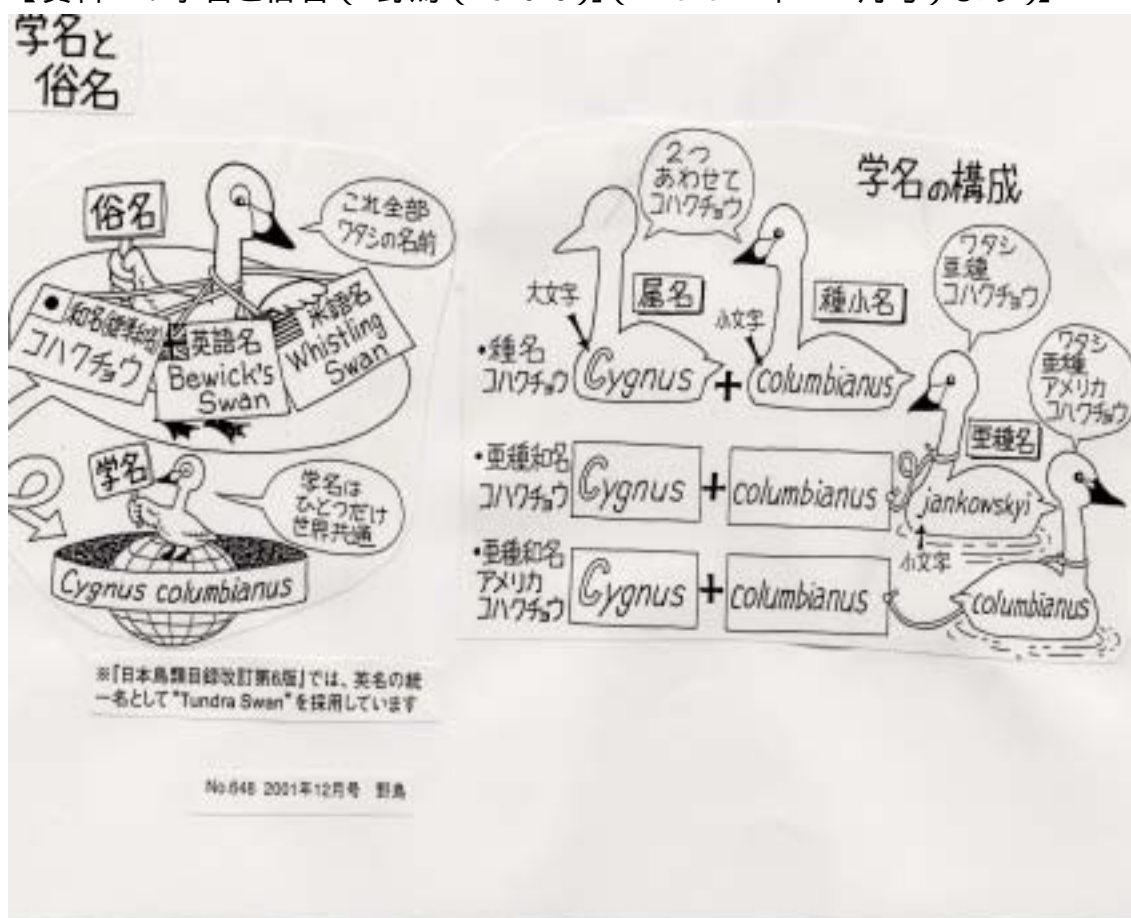 学名と
俗名
俗名
これ全部
ワタシの名前
和名(標準和名)
コハクチョウ
英語名
Bewick's
Swan
米語名
Whistling
Swan
学名
学名は
ひとつだけ
世界共通
Cygnus columbianus
※『日本鳥類目録改訂第6版』では、英名の統
一名として"Tundra Swan"を採用しています
No.648 2001年12月号 野鳥
学名の構成
2つ
あわせて
コハクチョウ
大文字
属名
小文字
種小名
・種名
コハクチョウ
Cygnus + columbianus
ワタシ
亜種
コハクチョウ
亜種名
・亜種和名
コハクチョウ
Cygnus + columbianus
jankowskyi
小文字
ワタシ
亜種
アメリカ
コハクチョウ
・亜種和名
アメリカ
コハクチョウ
Cygnus + columbianus
columbianus